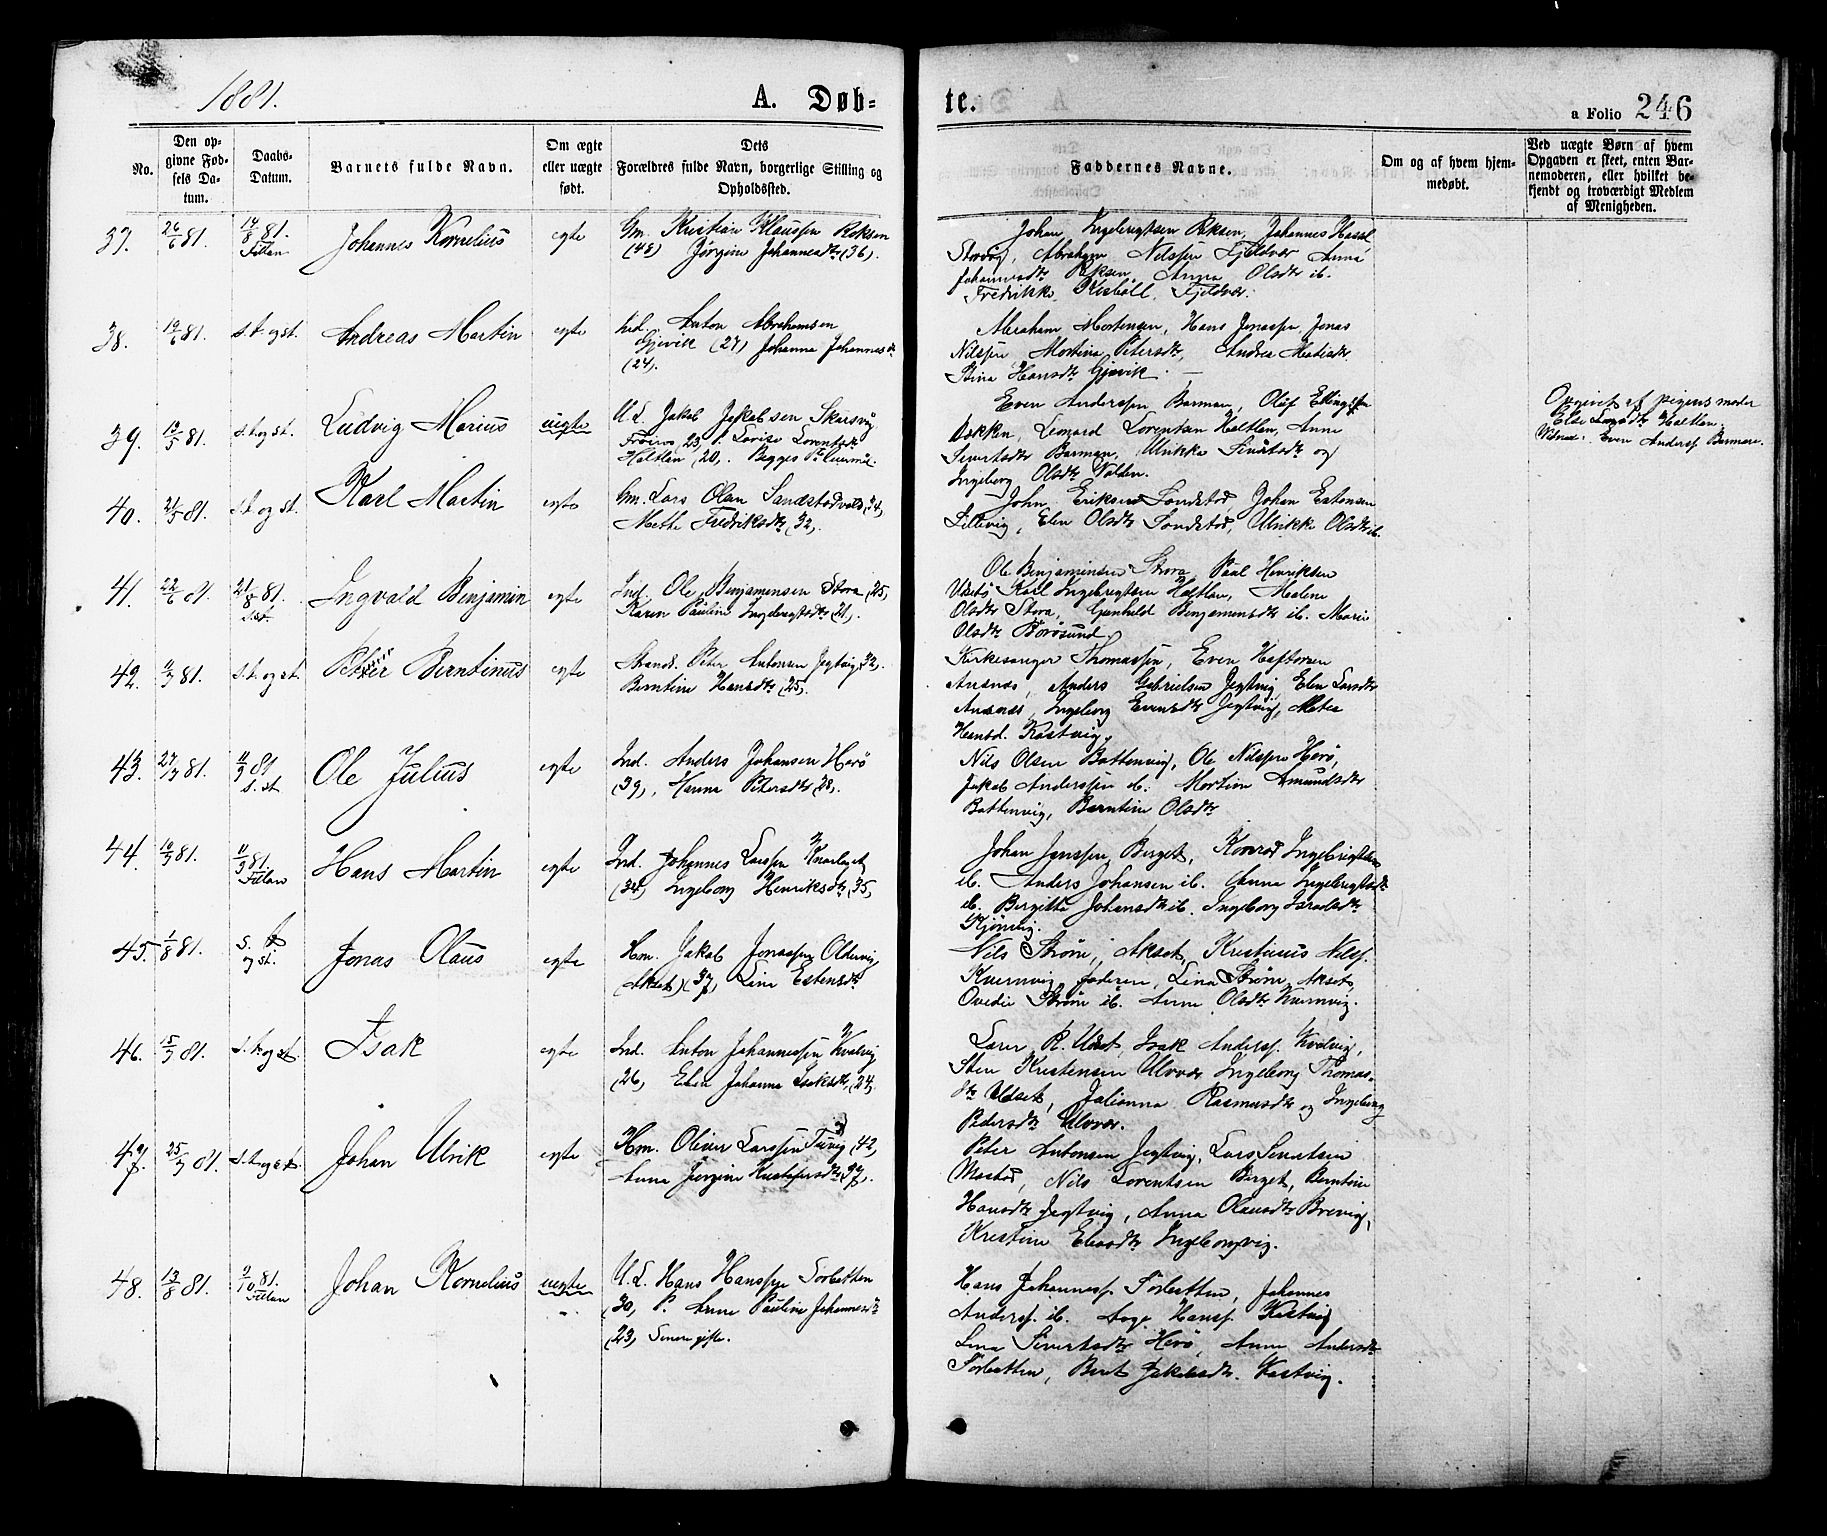 1881.
A. Døb-
te.
a Folio 246
No.
Den op-
givne Fød-
sels Da-
tum.
Daabs-
Datum.
Barnets fulde Navn.
Om ægte
eller uægte
født.
Dets
Forældres fulde Navn, borgerlige Stilling og
Opholdssted.
Faddernes Navne.
Om og af hvem hjem-
medøbt.
Ved uægte Børn af hvem
Opgaven er skeet, enten Bar-
nemoderen, eller hvilket be-
kjendt og troværdigt Medlem
af Menigheden.
37. 26/6 81. 14/8 81. Fillan Johannes Kornelius egte
Gm. Kristian Klaussen Reksen
(48) Jørgine Johannesdtr (36).
Johan Ingebrigtsen Reksen, Johannes Hassel
Storvig, Abraham Nilssen Fjeldvær Anna
Johannesdtr Reksen, Anna Olsdtr ib.
Fredrikke Fjeldvær.
38. 19/6 81. s.t. og st. Andreas Martin egte
Ind. Anton Abrahamsen
Gjevik (27) Johanna Johannesdtr
(24).
Abraham Mortensen, Hans Jonassen, Jonas
Nilssen Mortina Petersdtr, Andrea Matisdtr
Stina Hansdtr Gjevik.
39. 13/5 81. s.t. og st. Ludvig Marius uegte
U.L. Jakob Jakobsen Skarsvåg
Frøien 23, P. Lovise Lorentsdtr
Holtlen (20). Begges 1ste Leiermål.
Even Anderssen Barman, Oluf Ellingssen
Bakken, Leonard Lorentsen Holtlen, Anne
Sivertsdtr Barman, Ulrikke Sivertsdtr og
Ingeborg Olsdtr Valden.
Opgivet af pigens moder
Else Larsdtr Holtlen.
Vidne: Even Anderss. Barman.
40. 21/5 81. s.t. og st. Karl Martin egte
Gm. Lars Olsen Sandstadvold (34)
Meth Fredriksdtr (32).
John Eriksen Sandstad, Johan Estensen
Lillevig, Elen Olsdtr Sandstad, Ulrikke Olsdtr ib.
41. 22/6 81. 21/8 81. Ingvald Benjamin egte
Ind. Ole Benjaminsen Stora (25)
Karen Pauline Ingebrigtsdtr (21).
Ole Benjaminsen Stora, Paul Henriksen
Karl Ingebrigtsen Holtlen, Malene
Olsdtr Stora, Gunhild Benjaminsdtr ib. Marie
Olsdtr Børøsund.
42. 11/7 81. s.t. og st. Petter Berntinus egte
Strands. Peter Antonsen Jegtvig (32).
Berntine Hansdtr (25).
Kirkesanger Thomassen, Even Haftorsen
Ansnæs, Anders Gabrielsen Jegtvig, Elen Larsdtr
Ansnæs, Ingeborg Evensdtr Jegtvig, Meta
Hansd. Kastvig.
43. 27/7 81. 11/9 81 s. st Ole Julius egte
Ind. Anders Johansen Herø
(39), Hanna Petersdtr (28).
Nils Olsen Battenvig, Ole Nilssen Herø,
Jakob Anderssen ib. Martine Amundsdtr
Battenvig, Berntine Olsdtr
44. 10/7 81. 11/9 81. Fillan Hans Martin egte
Ind. Johannes Larssen Knarlaget
(34) Ingeborg Henriksdtr (35).
Johan Jenssen Berget, Konrad Ingebrigtsen
ib. Anders Johansen ib. Anna Ingebrigtsdtr
ib. Bergitte Johansdtr ib. Ingeborg Israelsdtr
45. 1/8 81. s. t. og st. Jonas Olaus egte
Hm. Jakob Jonassen Oldervig
(Akset) (37) Line Estensdtr
Nils Strøm, Akset, Kristinus Nilss.
Kvernvig, faderen, Lina Strøm, Akset,
Ovedie Strøm ib. Anne Olsdtr Kvernvig.
46. 15/7 81. s.t. og st Isak egte
Ind. Anton Johannessen Kvalvig
(26) Elen Johanna Isaksdtr (24)
Lars R. Udset, Isak Anderss. Kvalvig,
Sten Kristensen Ulvvær Ingeborg Thomas-
dtr Udset, Julianna Rasmusdtr og Ingeborg
Pedersdtr Ulvvær.
47. 25/7 81. s.t. og st. Johan Ulrik egte
Hm. Oliver Larssen Tuvig (42)
Anna Jørgine Kristofersdtr (37).
Peter Antonsen Jegtvig, Lars Sivertsen
Mastad, Nils Lorentsen Berget, Berntine
Hansdtr Jegtvig, Anna Olausdtr Brevig,
Kristine Eliasdtr Ingeborgvig.
48. 13/8 81. 2/10 81. Fillan Johan Kornelius uegte
U.L. Hans Hanssen Sørbotten
(30, P. Anne Pauline Johannesdtr
(23) Senere gifte.
Hans Johanness. Sørbotten, Johannes
Anderss. ib. Aage Hanss. Kastvig
Lena Sivertsdtr Herø, Anne Andersdtr
Sørbotten, Berit Jakobsdtr. Kastvig.